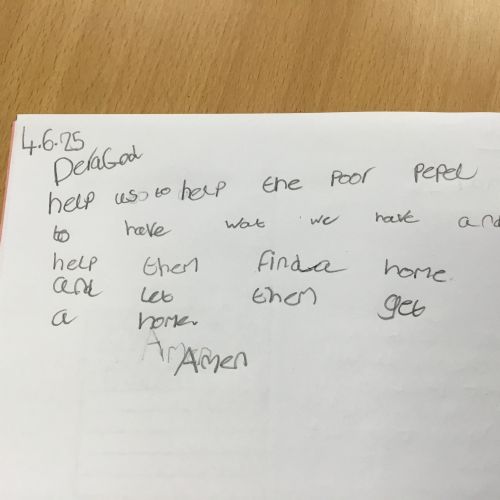 4.6.25
Dera God
help us to help the poor pepel
to have wat we have and
help them find a home.
and let them get
a home.
Amen
Amen